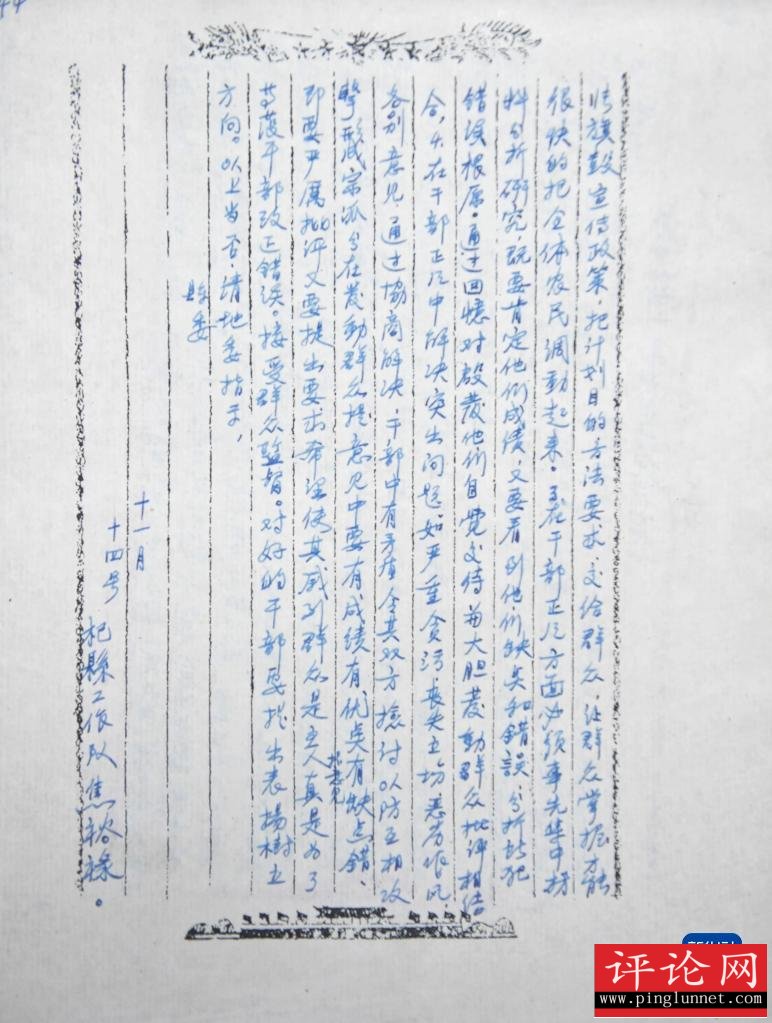 44
张旗鼓宣传政策，把计划目的方法要求，交给群众，让群众掌握，才能
很快的把全体农民调动起来。3、在干部正气方面必须事先集中材
料分析研究，既要肯定他们成绩，又要看到他们缺点和錯誤，分析其犯
错误根原。通过回憶对比啟發他们自觉交待，并大胆發動群众批评相结
合，4、在干部正气中解决突出问题如严重贪污，丧失立场，恶劣作风，
各别意见通过協商解决，干部中有矛盾令其双方检讨以防互相攻
擊形成宗派，5、在发動群众提意见中要有成绩有优点有缺点错，
即要严厲批评又要提出要求希望使其感到群众是主人提意见真是为了
帮助干部改正错误。接受群众监督。对好的干部要提出表揚树立
方向。以上当否请地委指示，
县委
十一月
十四号
杞縣工作队焦裕禄。
评论网
www.pinglunnet.com